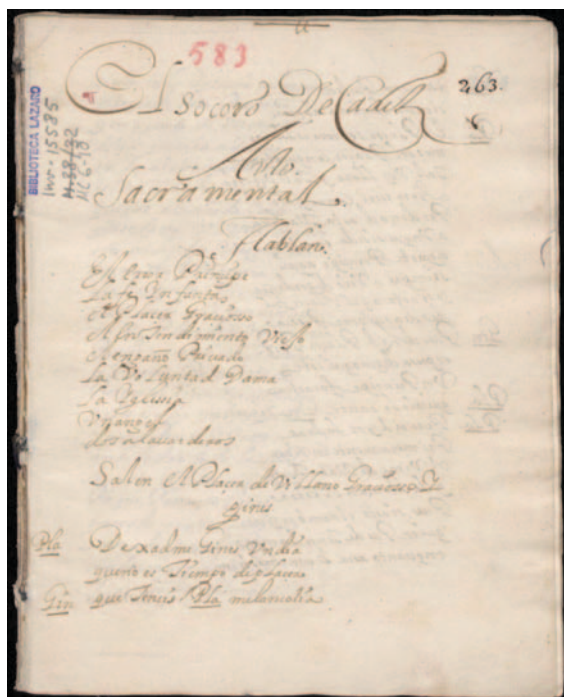 583
263.
BIBLIOTECA LAZARO
Inv- 15585
M 38-32
M C 6-40
El socoro De Cadiz
Auto
Sacramental.
Hablan.
El Principe
La fe Infanta
El Placer Gracioso
El Entendimiento Viejo
El engaño Privado
La Voluntad Dama
La Yglesia
Vn angel
dos alavarderos
Salen El Placer de Villano Gracioso Y
gines
Pla Dexadme Gines Vn dia
que no es Tiempo de placer
Gin que Teneis Pla melancolia